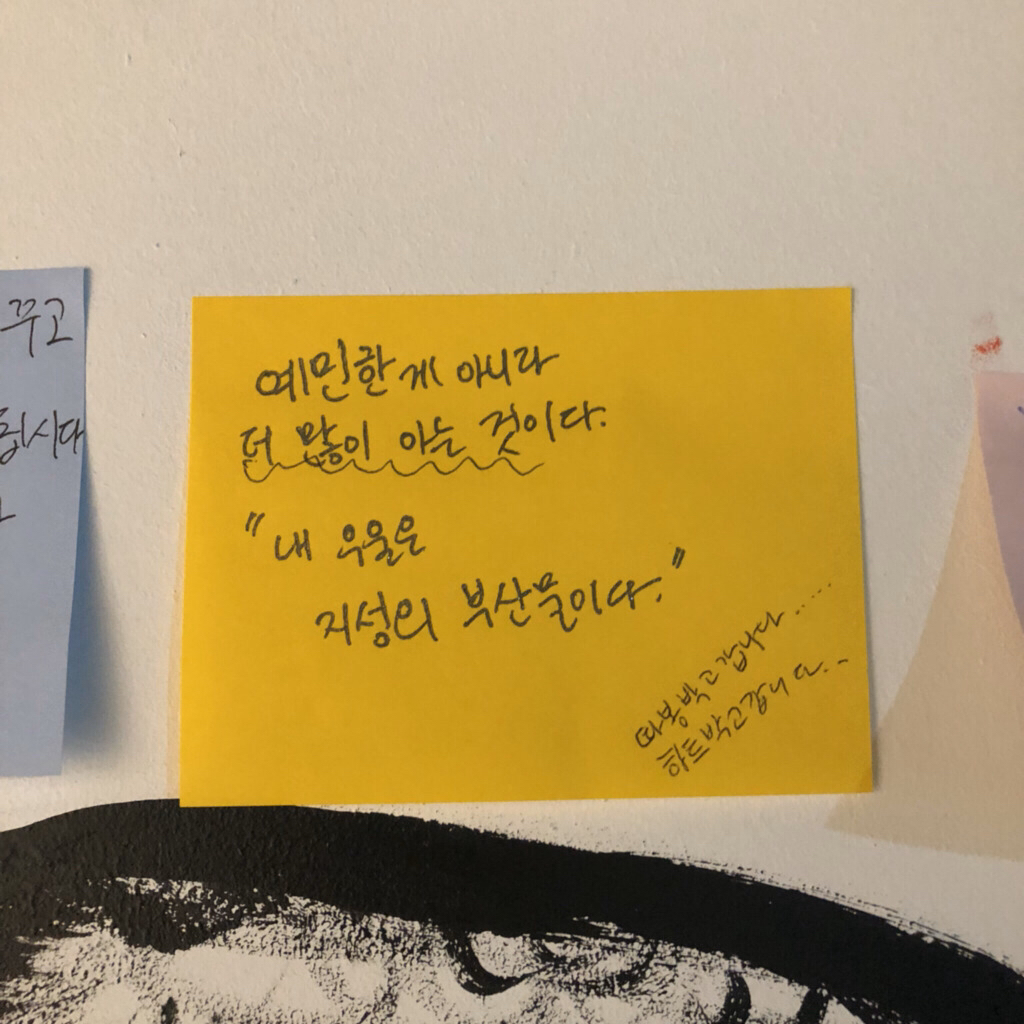 꾸고
힙시다
예민한 게 아니라
더 많이 아는 것이다.
"내 우울은
지성의 부산물이다."
따봉박고갑니다.....
하트박고갑니다...